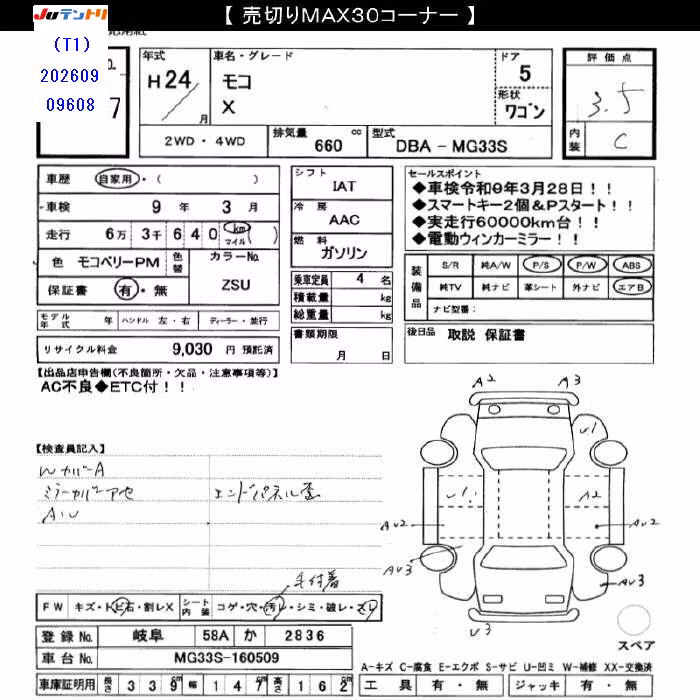 【 売切りMAX30コーナー 】
JUテントリ
(T1)
202609
09608
7
年式
H24
月
車名・グレード
モコ
X
ドア
5
形状
ワゴン
評価点
3.5
内装
C
2WD・4WD
排気量 660 cc
型式 DBA－MG33S
車歴 自家用・( )
車検 9年 3月
走行 6万 3千 6 4 0 km マイル
色 モコベリーPM
色替
カラーNo. ZSU
保証書 有・無
シフト
IAT
冷房
AAC
燃料
ガソリン
乗車定員 4 名
積載量 kg
総重量 kg
書類期限
月 日
セールスポイント
◆車検令和9年3月28日！！
◆スマートキー2個＆Pスタート！！
◆実走行60000km台！！
◆電動ウィンカーミラー！！
装備品
S/R 純A/W P/S P/W ABS
純TV 純ナビ 革シート 外ナビ エアB
ナビ型番:
モデル年式 年 ハンドル 左・右 ディーラー・並行
リサイクル料金 9,030 円 預託済
後日品 取説 保証書
【出品店申告欄(不良箇所・欠品・注意事項等)】
AC不良◆ETC付！！
【検査員記入】
Wカバー A
ミラーカバーアセ
エンドパネル歪
AU
毛付着
A2
A3
U1
U1
A2
AU2
AU2
AU3
AU3
U3
スペア
FW キズ・トビ石・割レX
シート内装 コゲ・穴・汚レ・シミ・破レ・スレ
登録No. 岐阜 58A か 2836
車台No. MG33S-160509
車庫証明用 長さ 339 幅 147 高さ 162 cm
A-キズ C-腐食 E-エクボ S-サビ U-凹ミ W-補修 XX-交換済
工具 有・無 ジャッキ 有・無